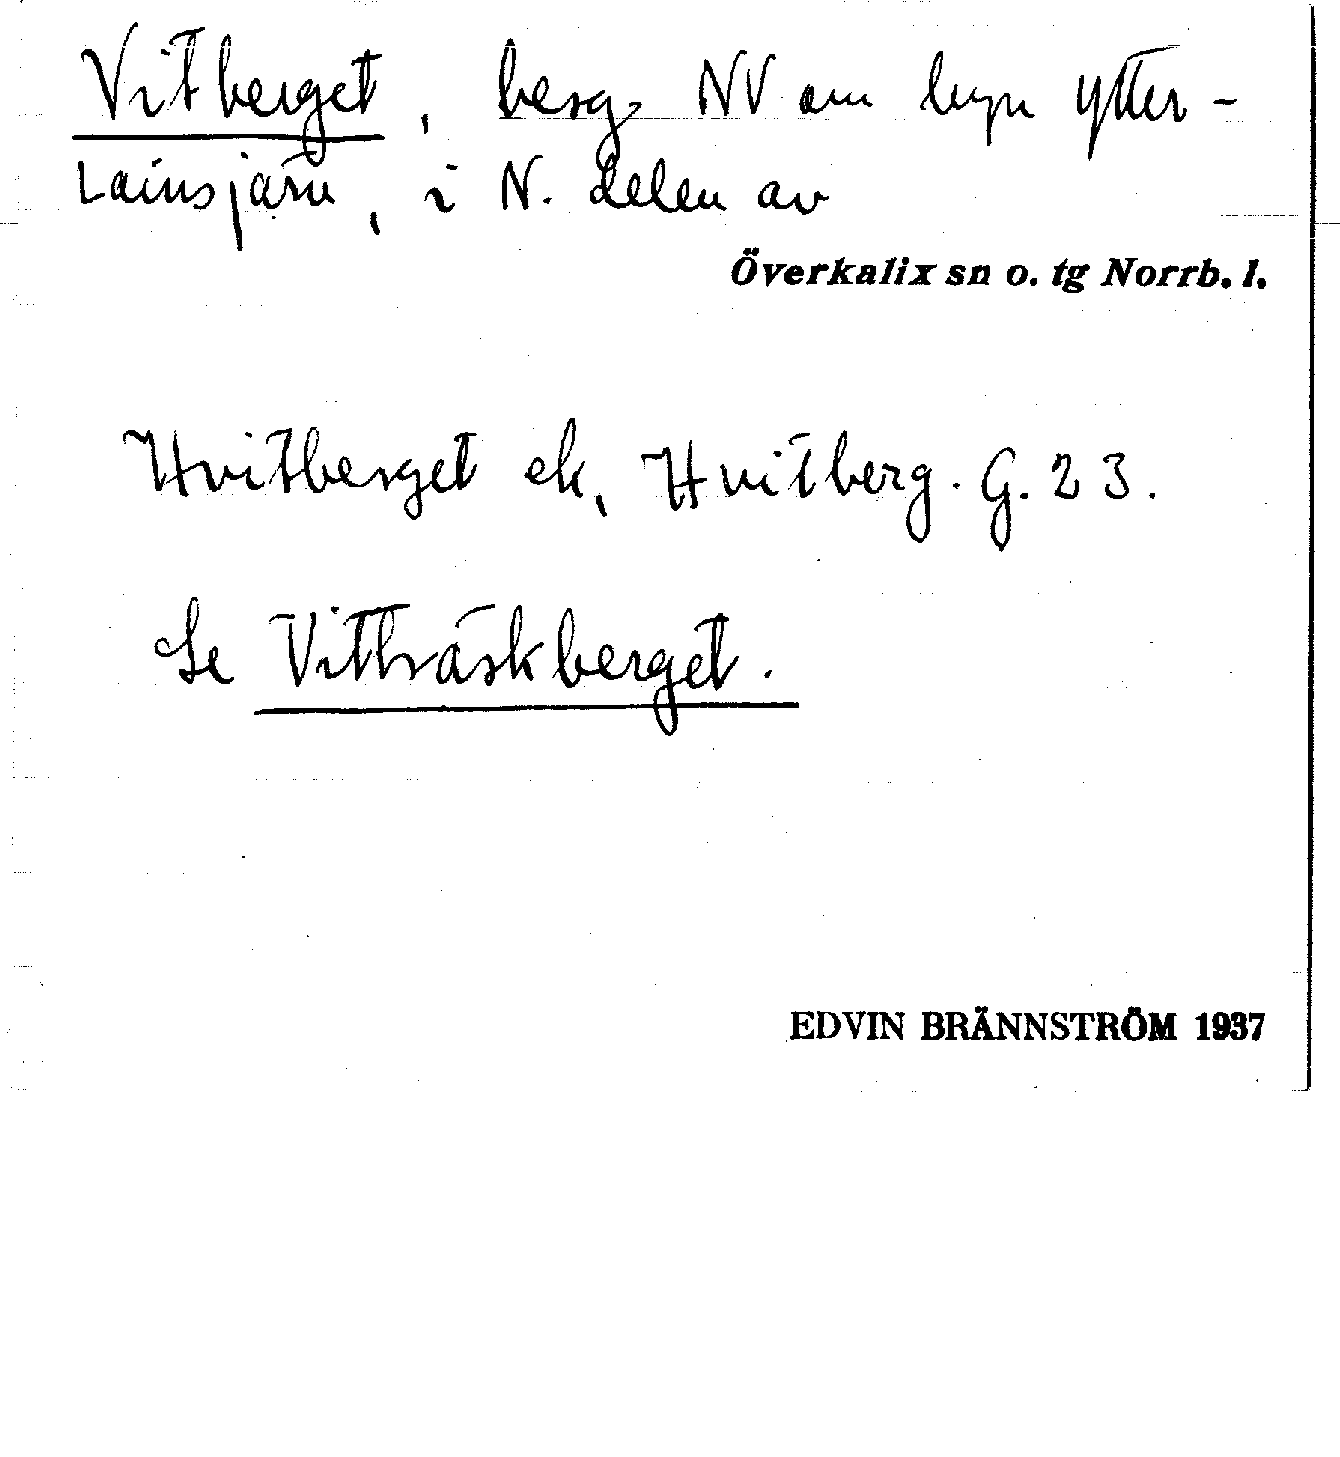 Vitberget, berg NV om byn Ytter-
Lainsjärv, i N. delen av
Överkalix sn o. tg Norrb. l.
Hvitberget ek, Hvitberg. G. 23.
Se Vitträskberget.
EDVIN BRÄNNSTRÖM 1937